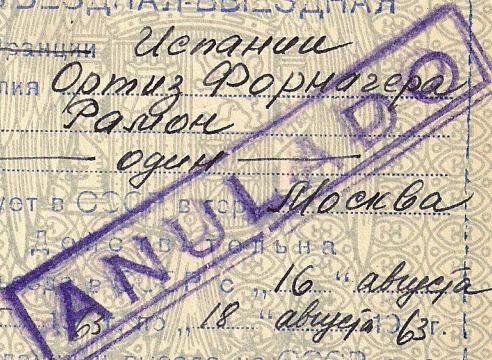 ВЪЕЗДНАЯ-ВЫЕЗДНАЯ
Испании
Ортиз Форнагера
Рамон
— один —
в СССР в гор. Москва
Действительна
с „16“ августа
63 по „18“ августа 1963 г.
ANULADO